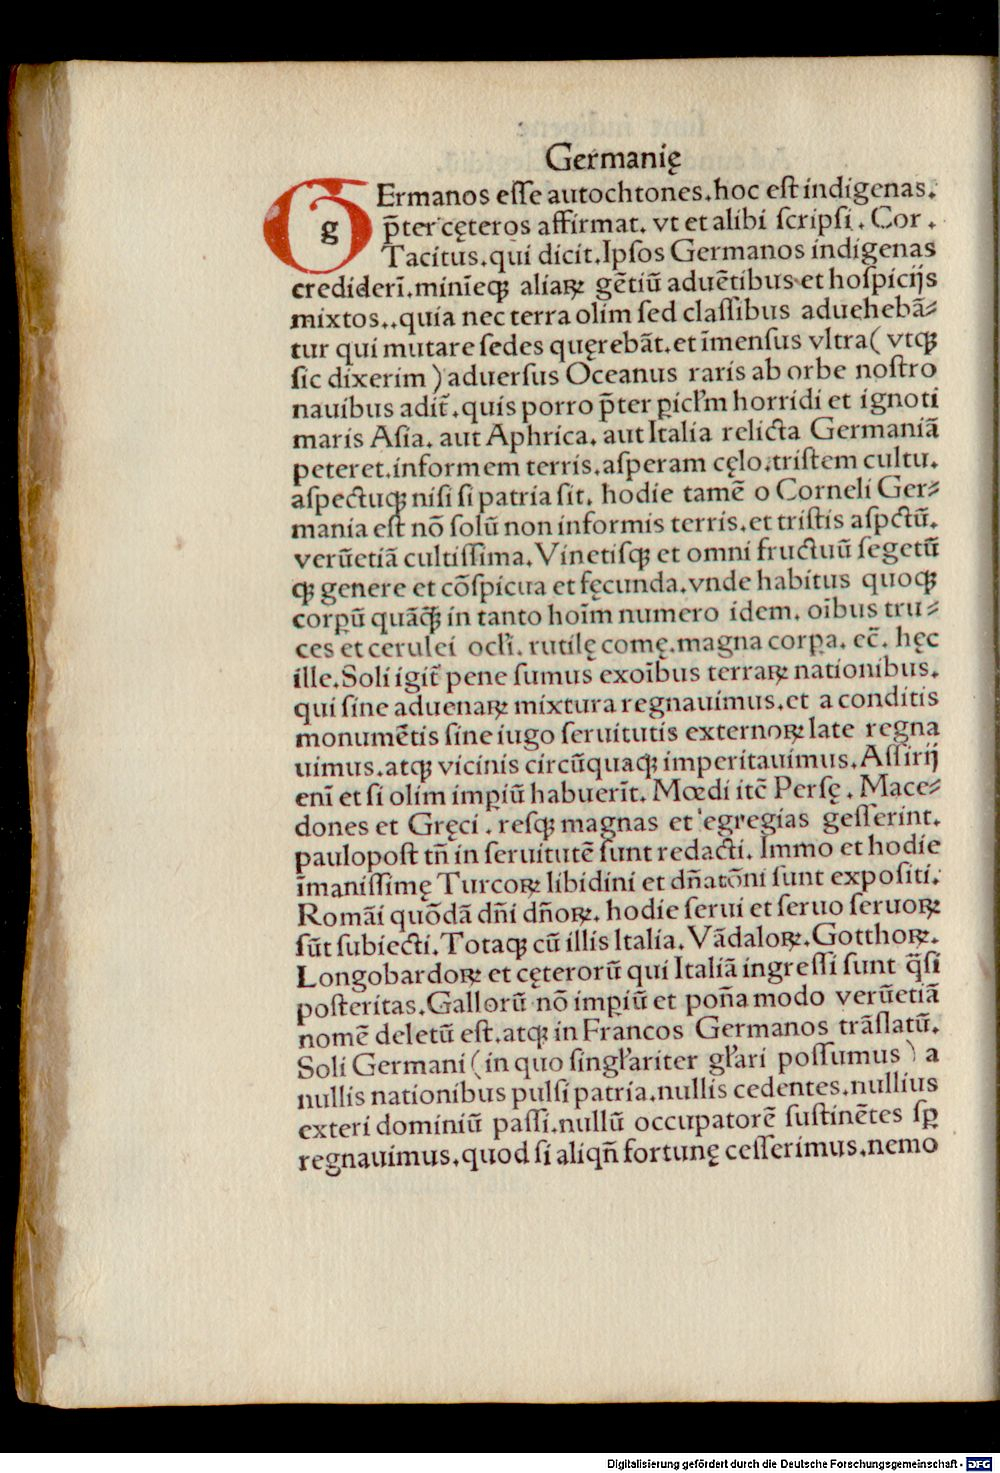 Germanię
GErmanos eſſe autochtones.hoc eſt indigenas.
p̄ter cęteros affirmat. vt et alibi ſcripſi. Cor.
Tacitus.qui dicit.Ipſos Germanos indigenas
credideri̅.mini̅eqꝫ aliaꝝ ge̅tiu̅ adue̅tibus et hoſpicijs
mixtos..quia nec terra olim ſed claſſibus aduehebā⸗
tur qui mutare ſedes quęrebāt.et i̅menſus vltra( vtqꝫ
ſic dixerim ) aduerſus Oceanus raris ab orbe noſtro
nauibus adit̄.quis porro p̄ter piclʼm horridi et ignoti
maris Aſia. aut Aphrica. aut Italia relicta Germaniā
peteret.informem terris.aſperam cęlo.triſtem cultu.
aſpectuqꝫ niſi ſi patria ſit. hodie tame̅ o Corneli Ger⸗
mania eſt no̅ ſolu̅ non informis terris.et triſtis aſpctu̅.
veru̅etiā cultiſſima. Vinetiſqꝫ et omni fructuu̅ ſegetu̅
qꝫ genere et co̅ſpicua et fęcunda.vnde habitus quoqꝫ
corpu̅ quāqꝫ̄ in tanto hoi̅m numero idem. oi̅bus tru⸗
ces et cerulei oclʼi. rutilę comę.magna corꝑa. ec̄. hęc
ille.Soli igit̄ pene ſumus exoi̅bus terraꝝ nationibus.
qui ſine aduenaꝝ mixtura regnauimus.et a conditis
monume̅tis ſine iugo ſeruitutis externoꝝ late regna
uimus.atqꝫ vicinis circu̅quaqꝫ imperitauimus.Aſſirij
eni̅ et ſi olim impiu̅ habueri̅t. Mœdi ite̅ Perſę. Mace⸗
dones et Gręci. reſqꝫ magnas et egregias geſſerint.
paulopoſt tn̄ in ſeruitute̅ ſunt redacti. Immo et hodie
i̅maniſſimę Turcoꝝ libidini et dn̄ato̅ni ſunt expoſiti.
Romāi quo̅dā dn̄i dn̄oꝝ. hodie ſerui et ſeruo ſeruoꝝ
ſu̅t ſubiecti. Totaqꝫ cu̅ illis Italia. Vādaloꝝ.Gotthoꝝ.
Longobardoꝝ et cęteroru̅ qui Italiā ingreſſi ſunt q̄ſi
poſteritas.Galloru̅ no̅ impiu̅ et pon̄a modo veru̅etiā
nome̅ deletu̅ eſt.atqꝫ in Francos Germanos trāſlatu̅.
Soli Germani (in quo ſinglʼariter glʼari poſſumus ) a
nullis nationibus pulſi patria.nullis cedentes.nullius
exteri dominiu̅ paſſi.nullu̅ occupatore̅ ſuſtine̅tes ſꝑ
regnauimus.quod ſi aliqn̄ fortunę ceſſerimus.nemo
Digitalisierung gefördert durch die Deutsche Forschungsgemeinschaft - DFG